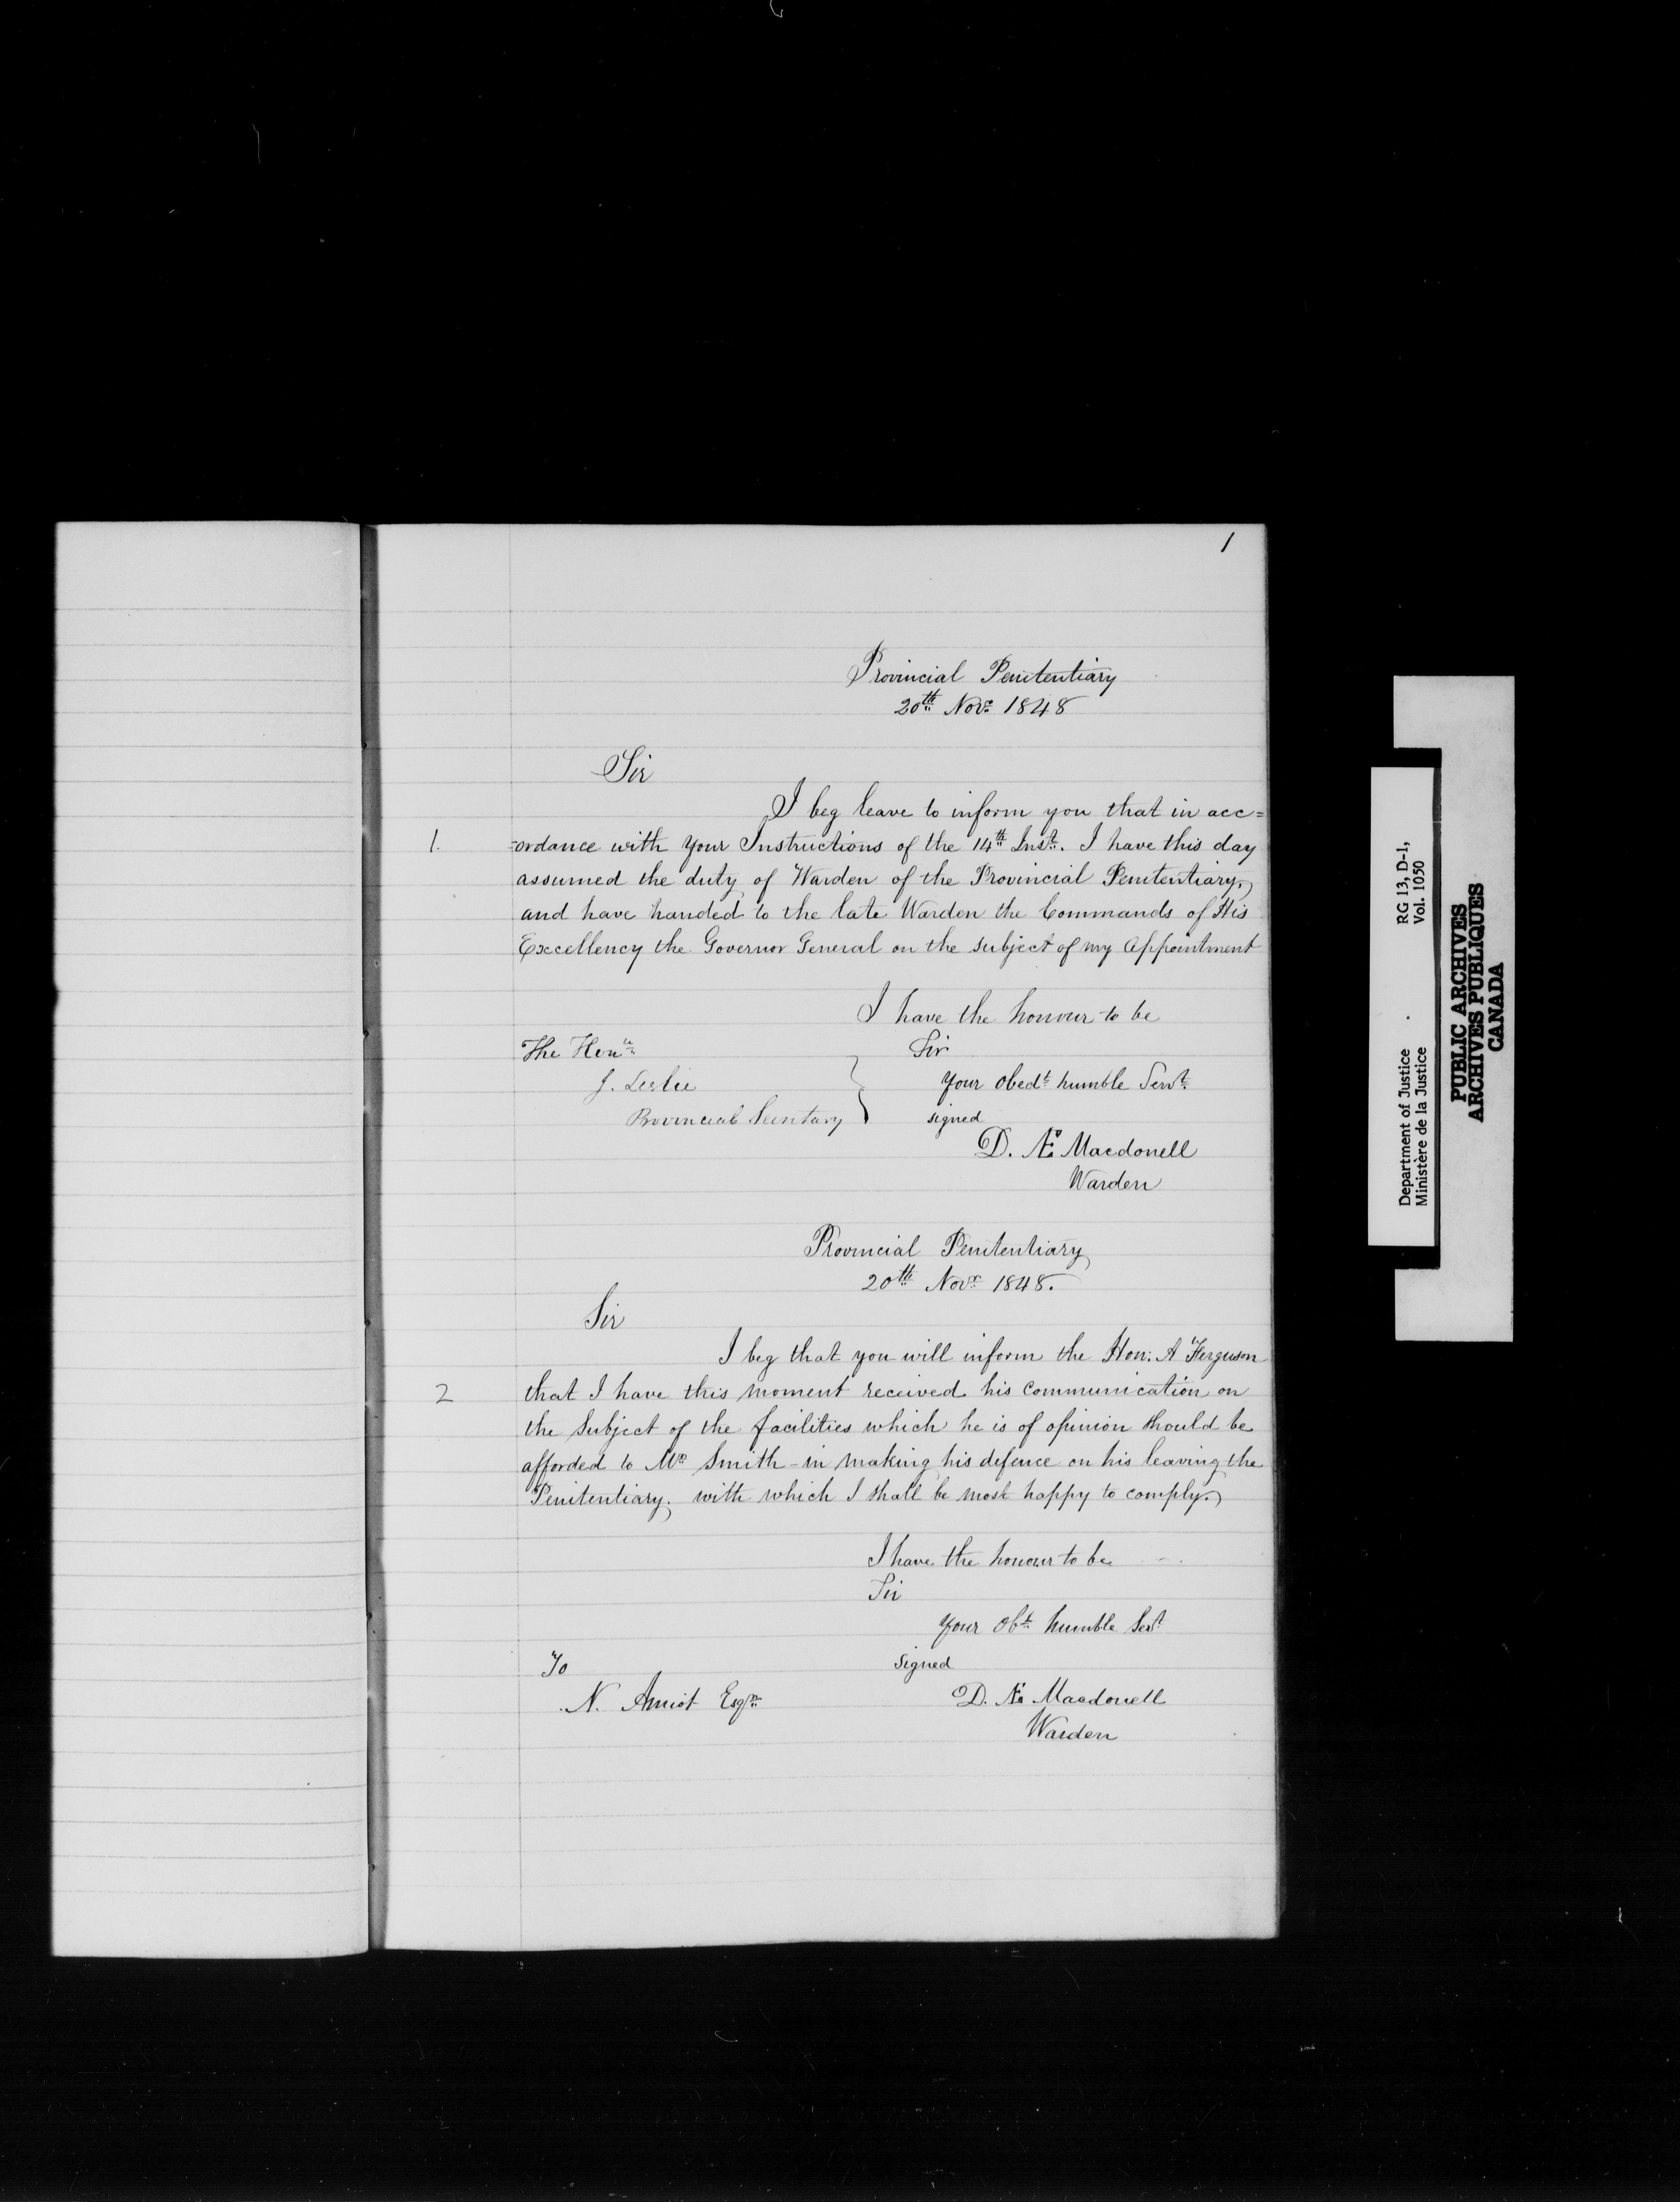 1
Provincial Penitentiary
20th Novr 1848
Sir
I beg leave to inform you that in acc=
1. =ordance with your Instructions of the 14th Inst. I have this day
assumed the duty of Warden of the Provincial Penitentiary,
and have handed to the late Warden the Commands of His
Excellency the Governor General on the subject of my Appointment
I have the honour to be
The Honle Sir
J. Leslie your obedt humble Servt
Provincial Secretary signed
D. Æ Macdonell
Warden
Provincial Penitentiary
20th Novr 1848.
Sir
I beg that you will inform the Hon: A Ferguson
2 that I have this moment received his communication on
the subject of the facilities which he is of opinion should be
afforded to Mr Smith - in making his defence on his leaving the
Penitentiary. with which I shall be most happy to comply.
I have the honour to be
Sir
your Obt humble Sert
To signed
N. Amiot Esqr D. Æ Macdonell
Warden
Department of Justice RG 13, D-1,
Ministère de la Justice Vol. 1050
PUBLIC ARCHIVES
ARCHIVES PUBLIQUES
CANADA